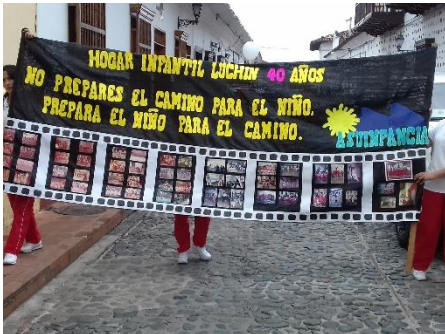 HOGAR INFANTIL LUCHIN 40 AÑOS
NO PREPARES EL CAMINO PARA EL NIÑO.
PREPARA EL NIÑO PARA EL CAMINO.
ASUINFANCIA